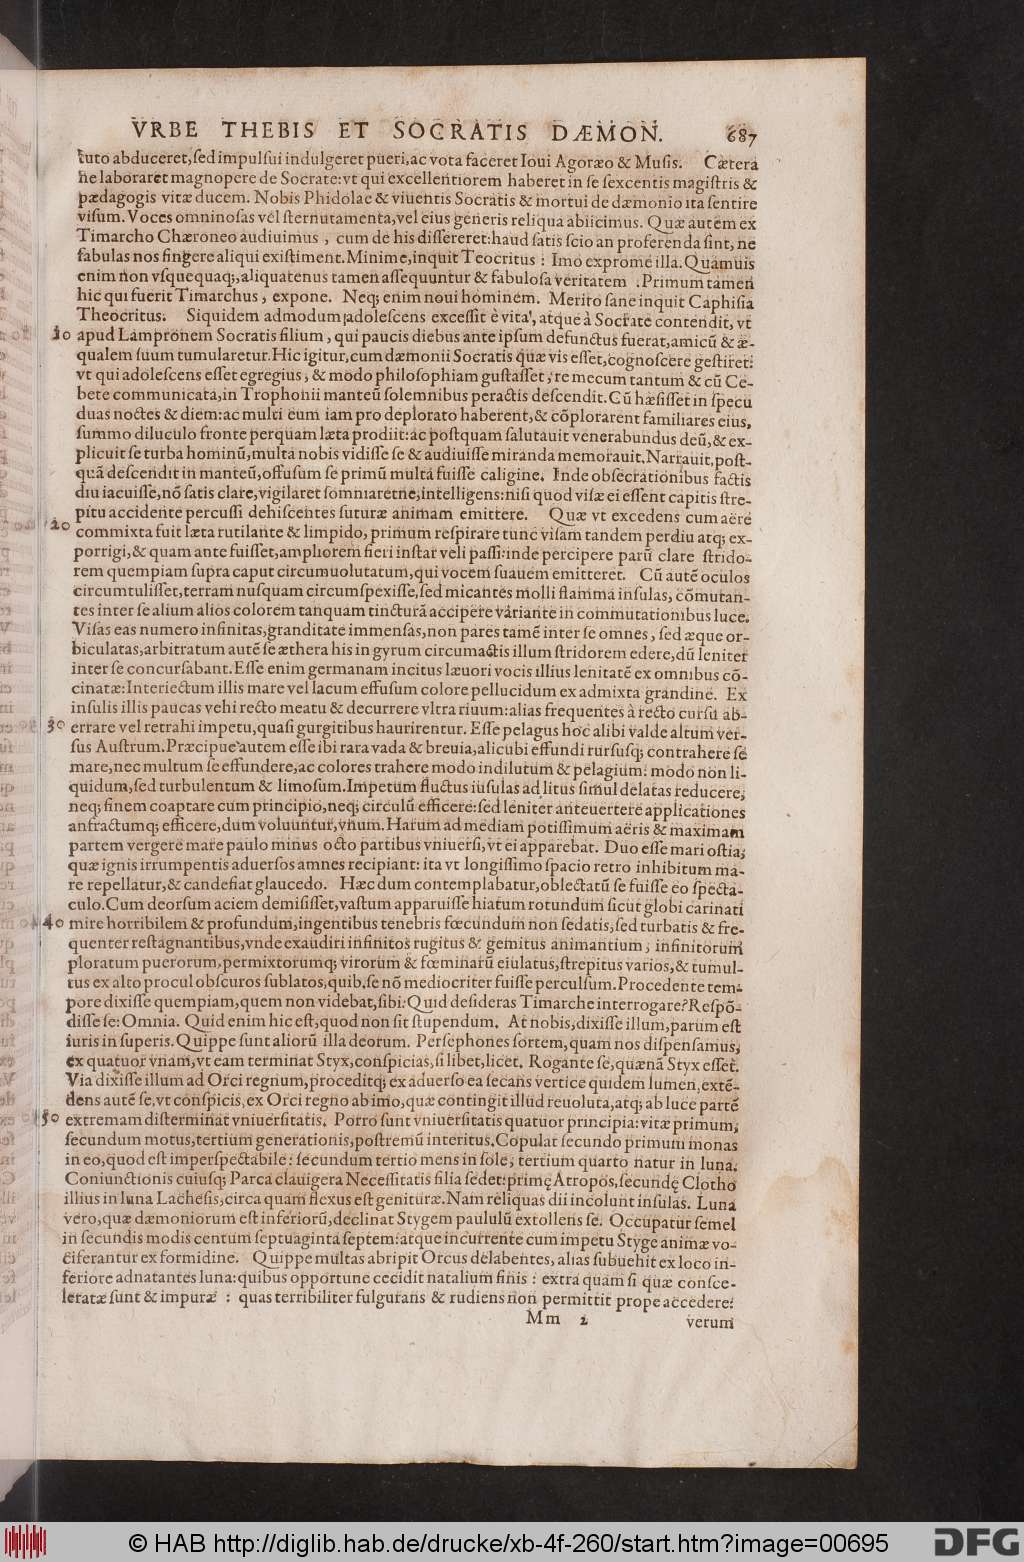 VRBE THEBIS ET SOCRATIS DÆMON. 687
tuto abduceret, sed impulsui indulgeret pueri, ac vota faceret Ioui Agoræo & Musis. Cætera
ne laboraret magnopere de Socrate: vt qui excellentiorem haberet in se sexcentis magistris &
pædagogis vitæ ducem. Nobis Phidolae & viuentis Socratis & mortui de dæmonio ita sentire
visum. Voces omninosas vel sternutamenta, vel eius generis reliqua abiicimus. Quæ autem ex
Timarcho Chæroneo audiuimus, cum de his dissereret: haud satis scio an proferenda sint, ne
fabulas nos fingere aliqui existiment. Minime, inquit Teocritus: Imo exprome illa. Quamuis
enim non vsquequaq;, aliquatenus tamen assequuntur & fabulosa veritatem. Primum tamen
hic qui fuerit Timarchus, expone. Neq; enim noui hominem. Merito sane inquit Caphisia
Theocritus. Siquidem admodum adolescens excessit è vita, atque à Socrate contendit, vt
10 apud Lampronem Socratis filium, qui paucis diebus ante ipsum defunctus fuerat, amicũ & æ-
qualem suum tumularetur. Hic igitur, cum dæmonii Socratis quæ vis esset, cognoscere gestiret:
vt qui adolescens esset egregius, & modo philosophiam gustasset, re mecum tantum & cũ Ce-
bete communicata, in Trophonii manteũ solemnibus peractis descendit. Cũ hæsisset in specu
duas noctes & diem: ac multi eum iam pro deplorato haberent, & cõplorarent familiares eius,
summo diluculo fronte perquam læta prodiit: ac postquam salutauit venerabundus deũ, & ex-
plicuit se turba hominũ, multa nobis vidisse se & audiuisse miranda memorauit. Narrauit, post-
quã descendit in manteũ, offusum se primũ multa fuisse caligine. Inde obsecrationibus factis
diu iacuisse, nõ satis clare, vigilaret somniaretne, intelligens: nisi quod visæ ei essent capitis stre-
pitu accidente percussi dehiscentes suturæ animam emittere. Quæ vt excedens cum aëre
20 commixta fuit læta rutilante & limpido, primum respirare tunc visam tandem perdiu atq; ex-
porrigi, & quam ante fuisset, ampliorem fieri instar veli passi: inde percipere parũ clare strido-
rem quempiam supra caput circumuolutatum, qui vocem suauem emitteret. Cũ autẽ oculos
circumtulisset, terram nusquam circumspexisse, sed micantes molli flamma insulas, cõmutan-
tes inter se alium alios colorem tanquam tincturã accipere variante in commutationibus luce.
Visas eas numero infinitas, granditate immensas, non pares tamẽ inter se omnes, sed æque or-
biculatas, arbitratum autẽ se æthera his in gyrum circumactis illum stridorem edere, dũ leniter
inter se concursabant. Esse enim germanam incitus læuori vocis illius lenitatẽ ex omnibus cõ-
cinatæ: Interiectum illis mare vel lacum effusum colore pellucidum ex admixta grandine. Ex
insulis illis paucas vehi recto meatu & decurrere vltra riuum: alias frequentes à recto cursu ab-
30 errare vel retrahi impetu, quasi gurgitibus haurirentur. Esse pelagus hoc alibi valde altum ver-
sus Austrum. Præcipue autem esse ibi rara vada & breuia, alicubi effundi rursusq; contrahere se
mare, nec multum se effundere, ac colores trahere modo indilutum & pelagium: modo non li-
quidum, sed turbulentum & limosum. Impetum fluctus iusulas ad litus simul delatas reducere,
neq; finem coaptare cum principio, neq; circulũ efficere: sed leniter anteuertere applicationes
anfractumq; efficere, dum voluuntur, vnum. Harum ad mediam potissimum aëris & maximam
partem vergere mare paulo minus octo partibus vniuersi, vt ei apparebat. Duo esse mari ostia,
quæ ignis irrumpentis aduersos amnes recipiant: ita vt longissimo spacio retro inhibitum ma-
re repellatur, & candefiat glaucedo. Hæc dum contemplabatur, oblectatũ se fuisse eo specta-
culo. Cum deorsum aciem demisisset, vastum apparuisse hiatum rotundum sicut globi carinati
40 mire horribilem & profundum, ingentibus tenebris fœcundum non sedatis, sed turbatis & fre-
quenter restagnantibus, vnde exaudiri infinitos rugitus & gemitus animantium, infinitorum
ploratum puerorum, permixtorumq; virorum & fœminarũ eiulatus, strepitus varios, & tumul-
tus ex alto procul obscuros sublatos, quib. se nõ mediocriter fuisse perculsum. Procedente tem-
pore dixisse quempiam, quem non videbat, sibi: Quid desideras Timarche interrogare? Respõ-
disse se: Omnia. Quid enim hic est, quod non sit stupendum. At nobis, dixisse illum, parum est
iuris in superis. Quippe sunt aliorũ illa deorum. Persephones sortem, quam nos dispensamus,
ex quatuor vnam, vt eam terminat Styx, conspicias, si libet, licet. Rogante se, quænã Styx esset.
Via dixisse illum ad Orci regnum, proceditq; ex aduerso ea secans vertice quidem lumen, extẽ-
dens autẽ se, vt conspicis, ex Orci regno ab imo, quæ contingit illud reuoluta, atq; ab luce partẽ
50 extremam disterminat vniuersitatis. Porro sunt vniuersitatis quatuor principia: vitæ primum,
secundum motus, tertium generationis, postremũ interitus. Copulat secundo primum monas
in eo, quod est imperspectabile: secundum tertio mens in sole, tertium quarto natur in luna.
Coniunctionis cuiusq; Parca clauigera Necessitatis filia sedet: primę Atropos, secundę Clotho
illius in luna Lachesis, circa quam flexus est genituræ. Nam reliquas dii incolunt insulas. Luna
vero, quæ dæmoniorum est inferiorũ, declinat Stygem paululũ extollens se. Occupatur semel
in secundis modis centum septuaginta septem: atque incurrente cum impetu Styge animæ vo-
ciferantur ex formidine. Quippe multas abripit Orcus delabentes, alias subuehit ex loco in-
feriore adnatantes luna: quibus opportune cecidit natalium finis: extra quam si quæ consce-
leratæ sunt & impuræ: quas terribiliter fulgurans & rudiens non permittit prope accedere:
Mm 2 verum
© HAB http://diglib.hab.de/drucke/xb-4f-260/start.htm?image=00695
DFG